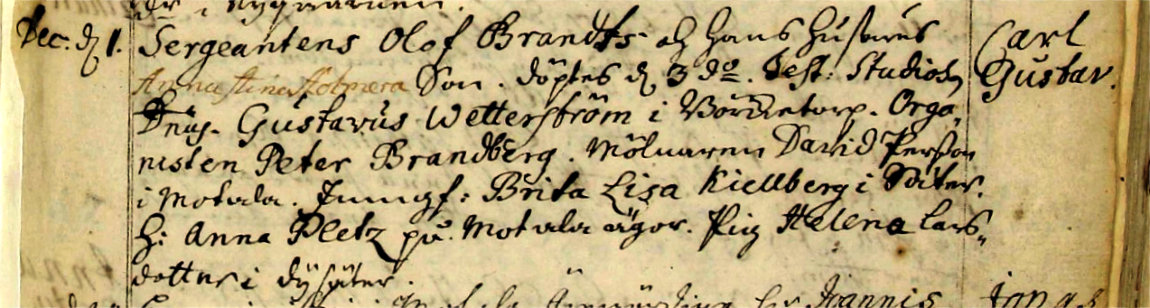 Dec. d. 1. Sergeantens Olof Brandts och hans hustrus Carl
Anna Stina Holmera Son. döptes d. 3 do. Test: Studios. Gustav.
Dnus. Gustavus Wetterström i Orga-
nisten Peter Brandberg. Mölnaren David Persson
i Motala. Jungf: Brita Lisa Kiellberg i Säter.
H: Anna Pletz på Motala ägor. Pig Helena Lars-
dotter i Dysäter.
Joannis Jonas